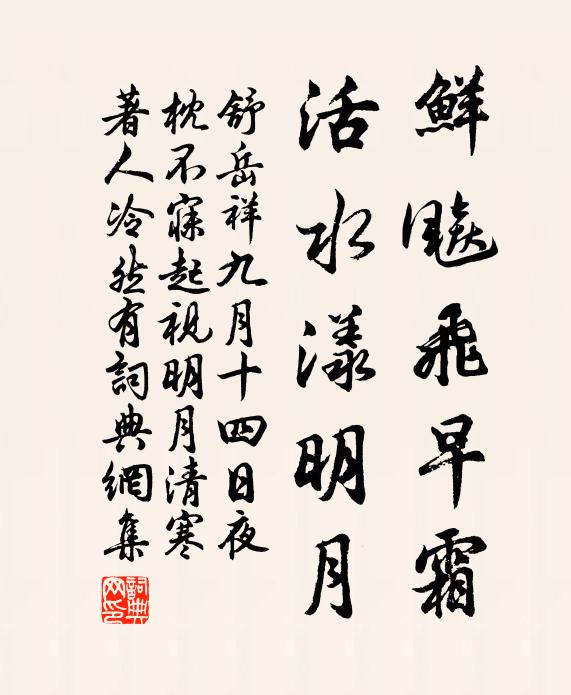 鮮飈飛早霜
活水漾明月
舒岳祥九月十四日夜
枕不寐起視明月清寒
著人冷然有詞典網集
詞典网印